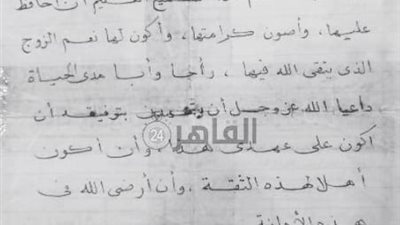 أن أحافظ
عليها، وأصون كرامتها، وأكون لها نعم الزوج
الذى يتقى الله فيها، وأخاً وأباً مدى الحياة
داعيا الله عز وجل أن بتوفيقه أن
اكون على عهدى هذا، وأن أكون
أهلا لهذه الثقة، وأن أرضى الله فى
القاهرة 24